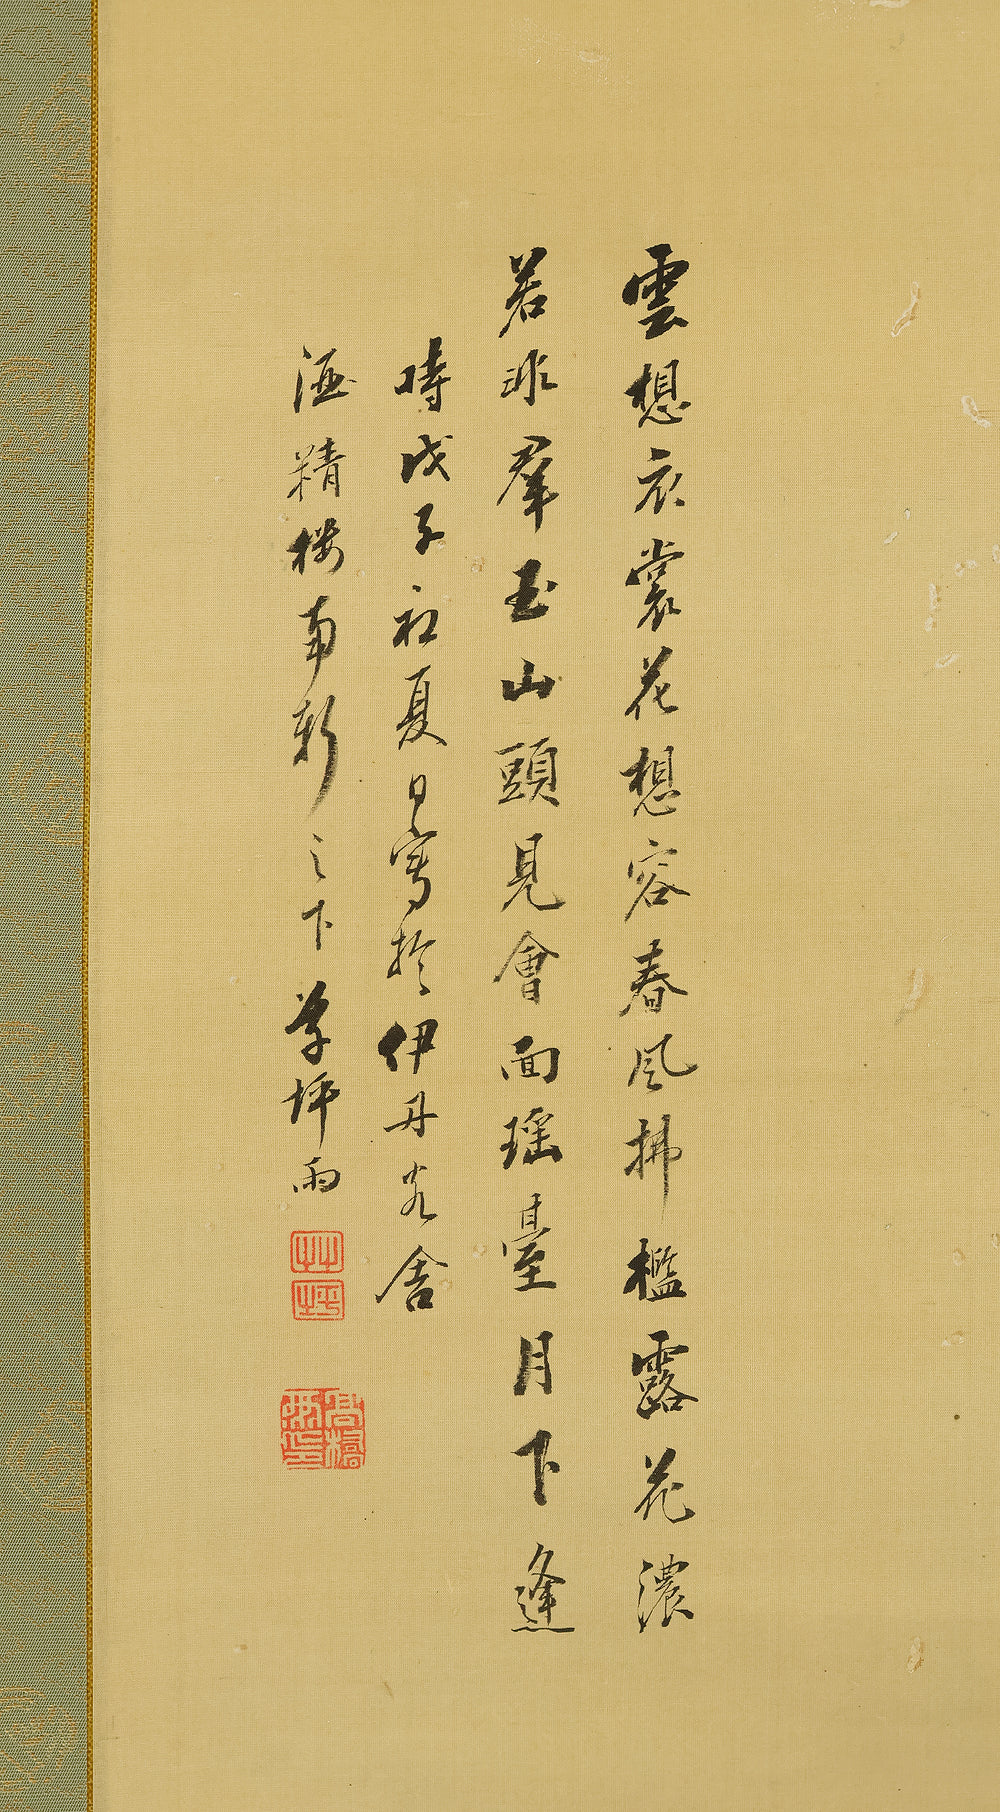 雲想衣裳花想容春風拂檻露花濃
若非羣玉山頭見會面瑶臺月下逢
時戊子初夏日寫於伊丹客舍
精楼南軒之下草坪雨
艸
坪
高橋雨印